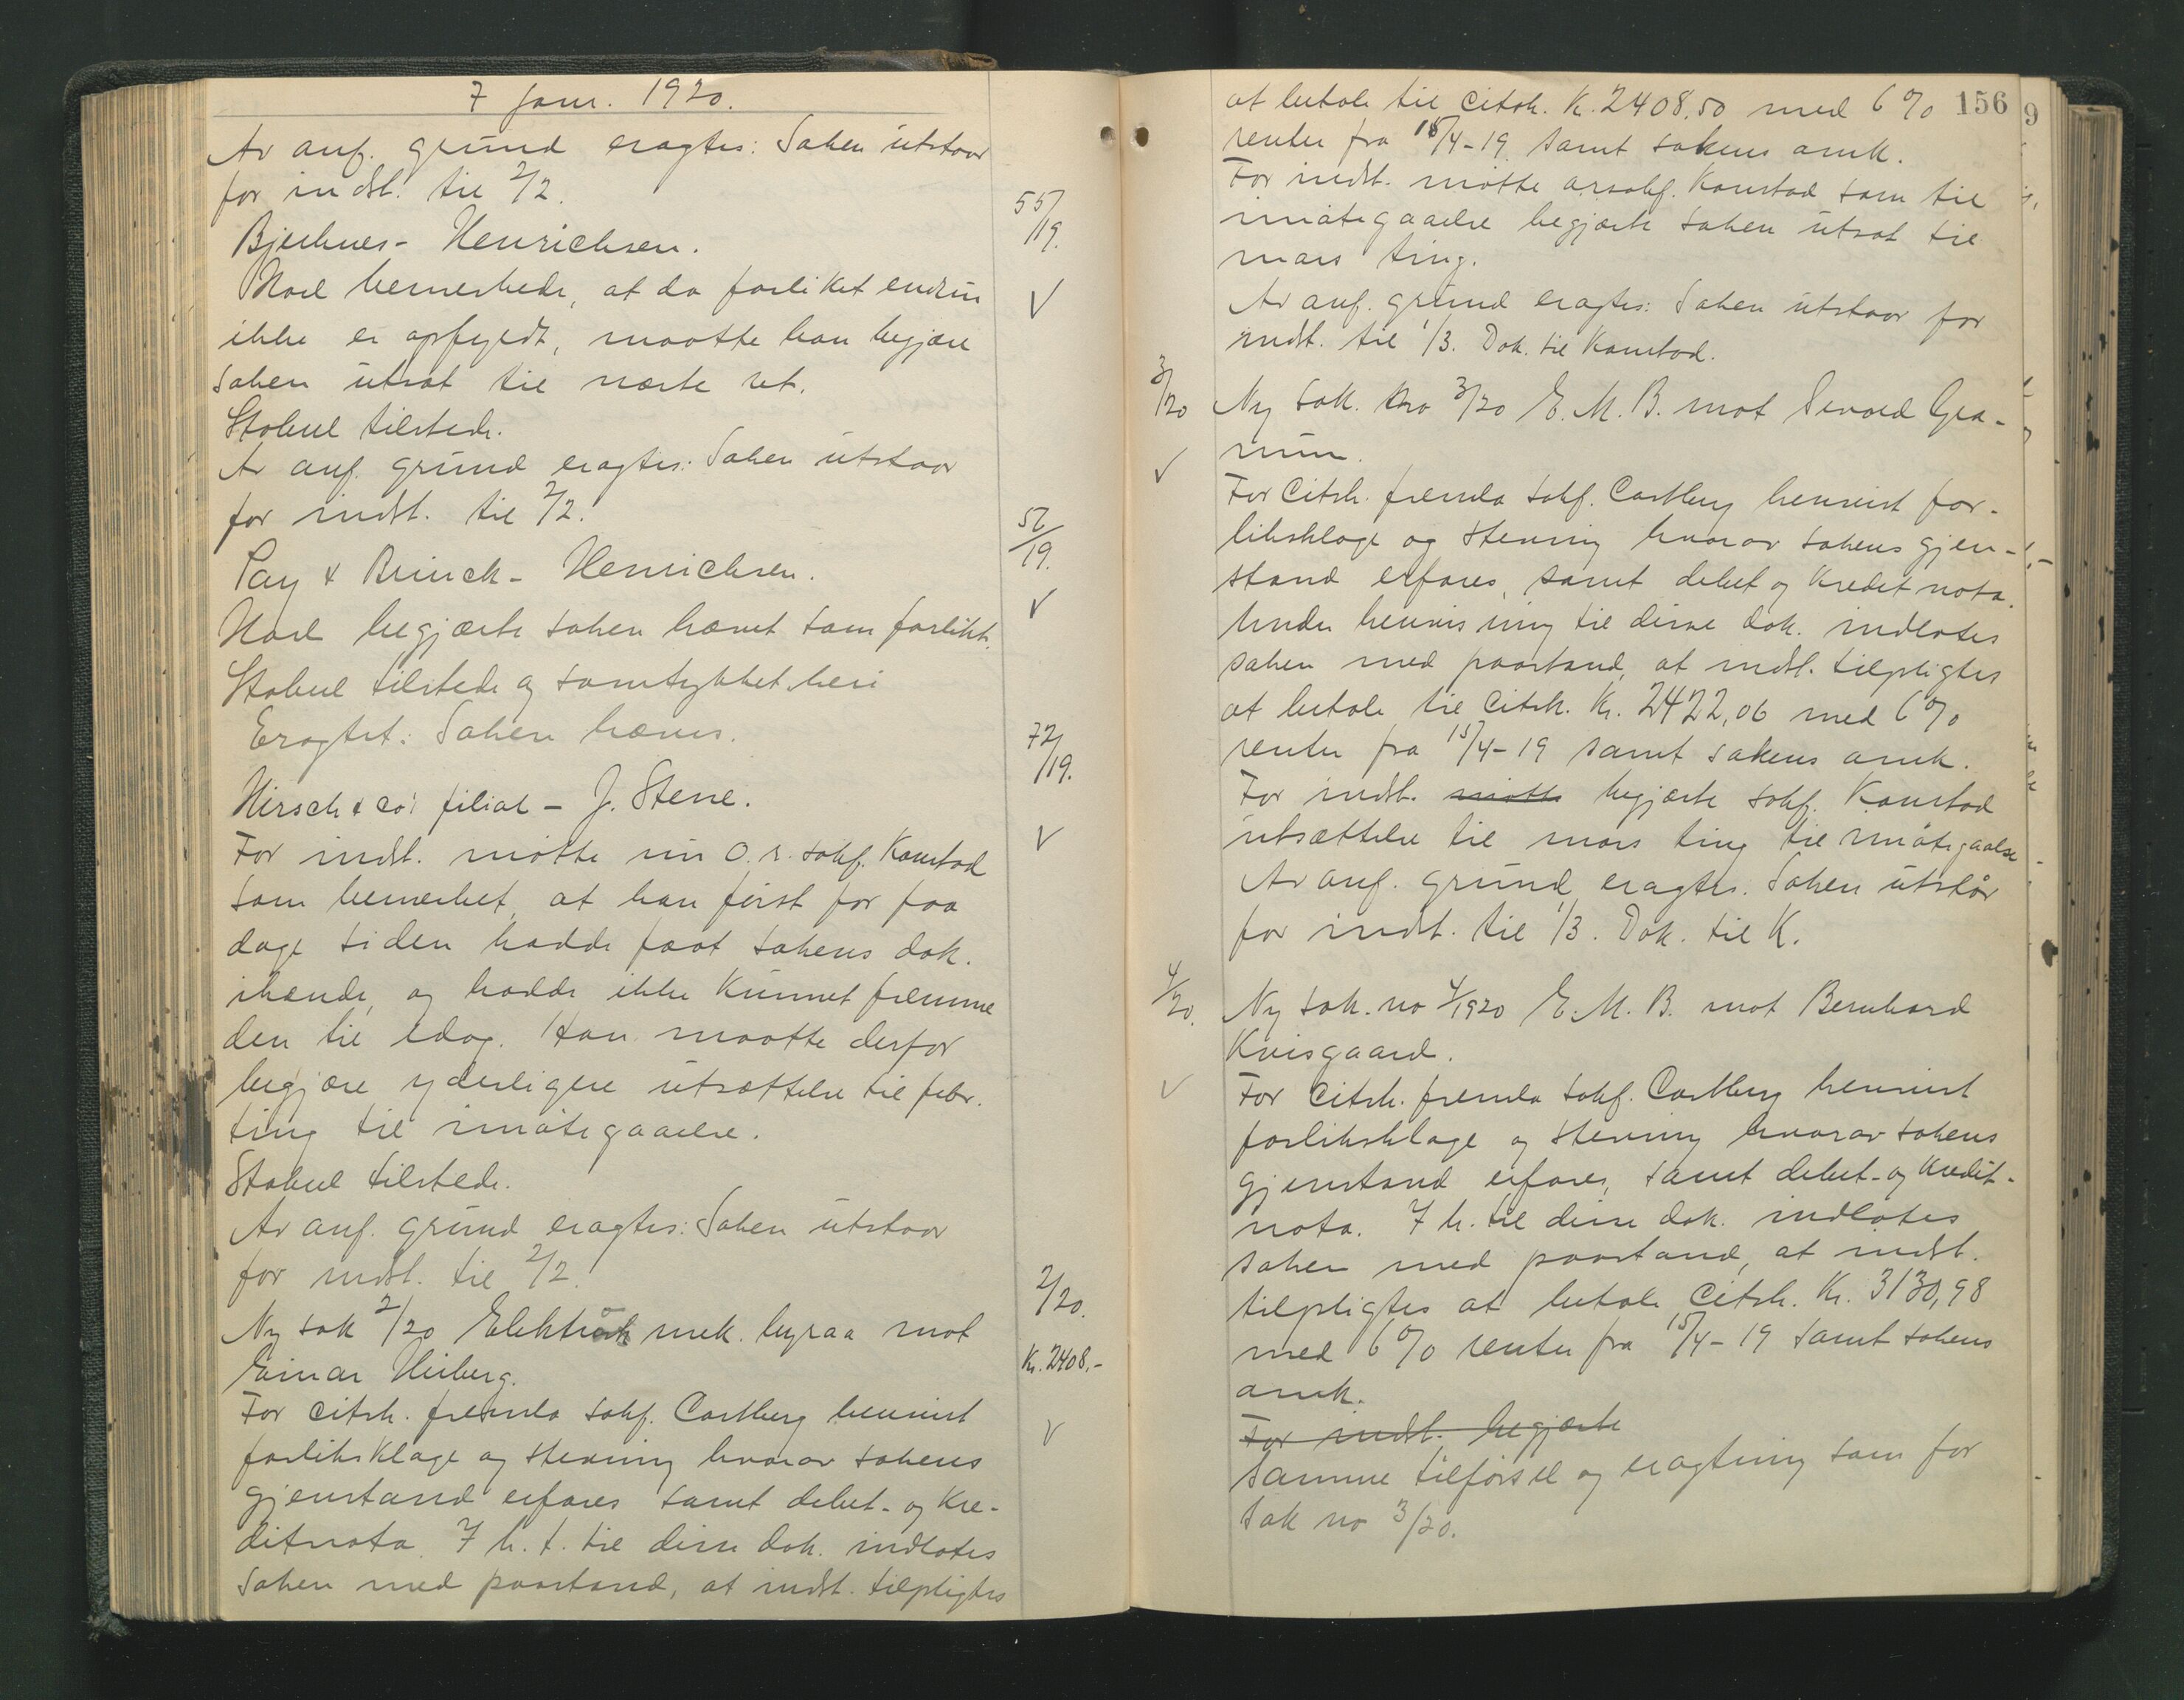 7 janr. 1920.
Av anf. grund eragtes: Saken utstaar
for indst. til 2/2.
Bjerknes - Henrichsen.
55/19.
Noel bemerkede, at da forliket endnu
ikke er opfyldt, maatte han begjære
saken utsat til næste ret.
Stabel tilstede.
Av anf. grund eragtes: Saken utstaar
for indst. til 2/2.
Pay & Brinck - Henrichsen.
52/19.
Noel begjærte saken hævet som forlikt.
Stabel tilstede og samtykket heri
Eragtet: Saken hæves.
72/19.
Hirsch & co's filial - J. Stene.
For indst. møtte nu O.r. sakf. Konstad
som bemerket, at han først for faa
dage siden hadde faat sakens dok.
ihænde, og hadde ikke kunnet fremme
den til idag. Han maatte derfor
begjære yderligere utsættelse til febr.
ting til imøtegaaelse.
Stabel tilstede.
Av anf. grund eragtes: Saken utstaar
for indst. til 2/2.
2/20.
Ny sak 2/20 Elektrok mek. byraa mot
Einar Heiberg.
Kr. 2408.-
For citsk. fremla sakf. Castberg beuvist
forliksklage og stevning hvorav sakens
gjenstand erfares samt debet- og kre-
ditnota. 7 h. t. til disse dok. indlates
saken med paastand, at indst. tilpligtes
156
9
at betale til citsk. Kr. 2408,50 med 6 %
renter fra 15/4-19 samt sakens omk.
For indst. møtte orsakf. Konstad som til
imøtegaaelse begjærte saken utsat til
mars ting.
Av anf. grund eragtes: Saken utstaar for
indst. til 1/3. Dok. til Konstad.
3/20
Ny sak. no 3/20 E. M. B. mot Sevald Gra-
num.
For citsk. fremla sakf. Castberg beuvist for-
liksklage og stevning hvorav sakens gjen-
stand erfares, samt debet og kredit nota.
Under henvisning til disse dok. indlates
saken med paastand, at indst. tilpligtes
at betale til citsk. Kr. 2422,06 med 6 %
renter fra 15/4-19 samt sakens omk.
For indst. møtte begjærte sakf. Konstad
utsættelse til mars ting til imøtegaaelse
Av anf. grund eragtes: Saken utstår
for indst. til 1/3. Dok. til K.
4/20.
Ny sak. no 4/1920 E. M. B. mot Bernhard
Kvisgaard.
For citsk. fremla sakf. Castberg beuvist
forliksklage og stevning hvorav sakens
gjenstand erfares, samt debet- og kredit-
nota. 7 h. til disse dok. indlates
saken med paastand, at indst.
tilpligtes at betale citsk. Kr. 3130,98
med 6 % renter fra 15/4-19 samt sakens
omk.
For indst. begjærte
Samme tilførsel og eragtning som for
sak no 3/20.